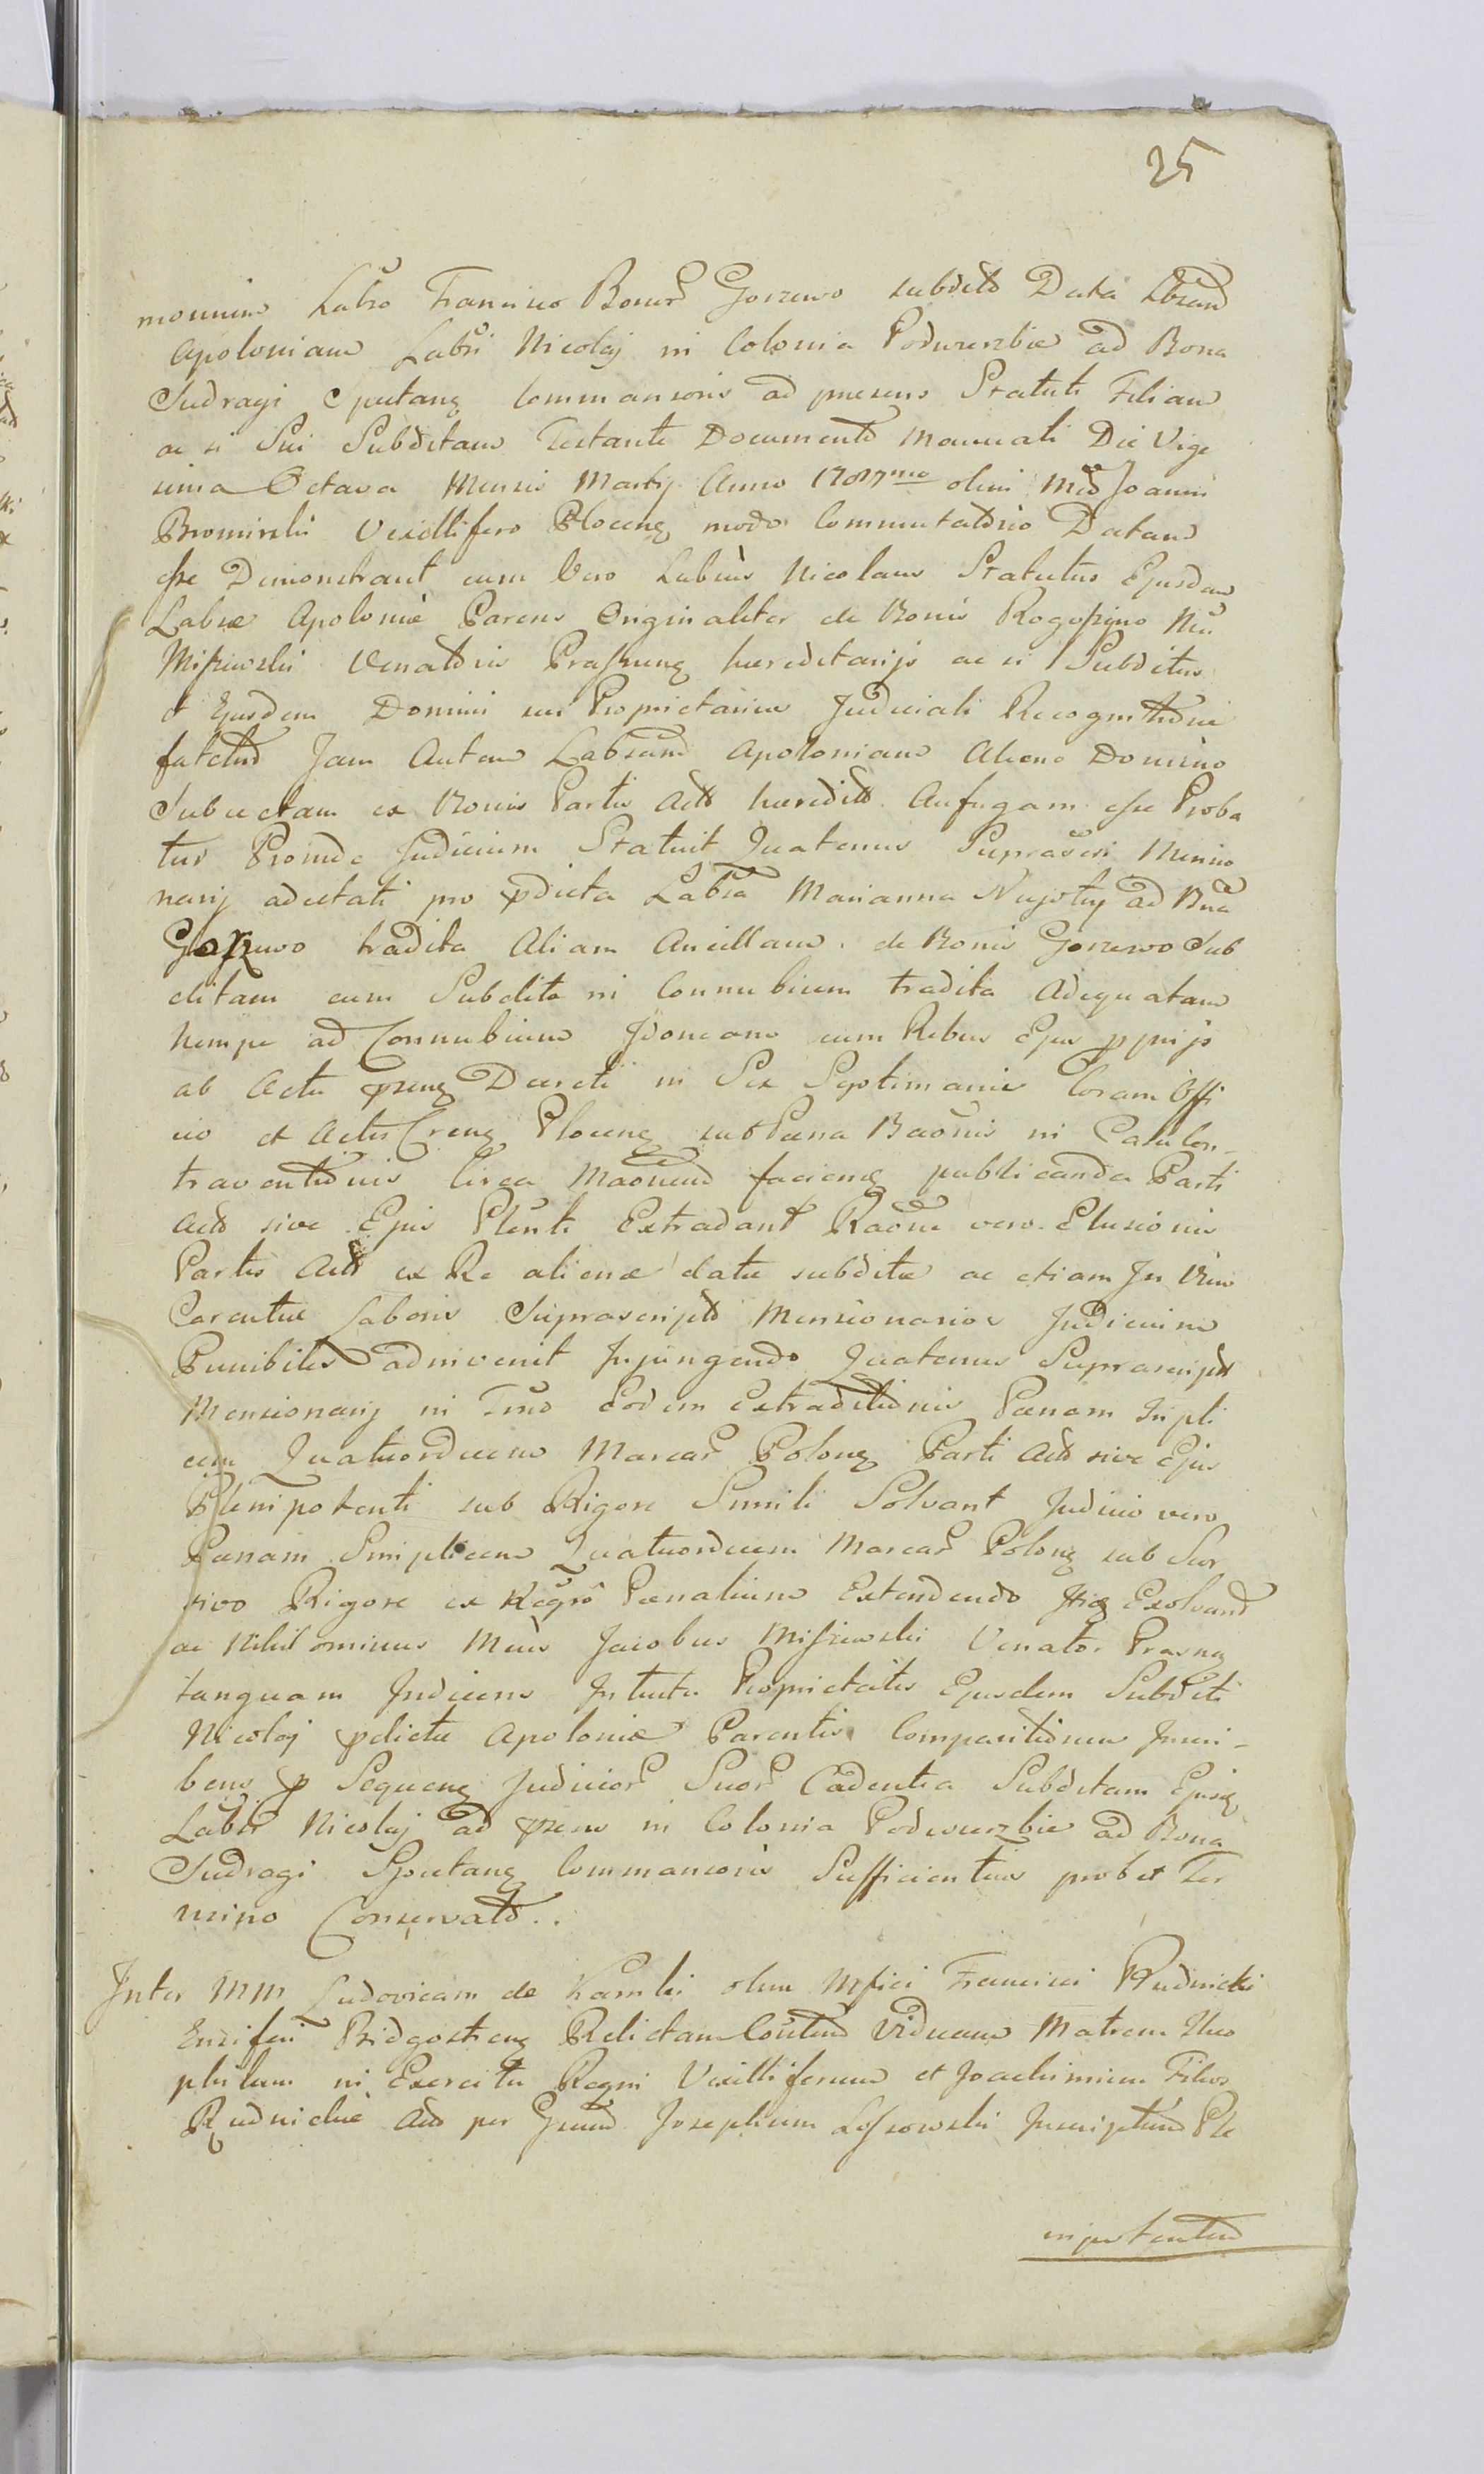 25
monium Labro Francisco Bonor Gorzewo subdito Data Labram
Apoloniam Labri Nicolaj in Colonia Podwierzbie ad Bona
Sudragi Spectang Commansoris ad presens Statuti Filiam
ac si Sui Subditam Testante Documento Manuali Die Vige
sima Octava Mensis Martij Anno 1787mo olim Mco Joanni
Bromirski Vexillifero Ploceng modo Commutatorio Datam
esse Demonstrant cum Vero Labrus Nicolaus Statutus Ejusdem
Labrae Apoloniae Parens Originaliter de Bonis Rogoszyno Mci
Miszewski Venatoris Prasnueng haereditarijs ac si Subditus
et Ejusdem Domini sui Proprietarius Judiciali Recognitione
fatetur Jam Autem Labram Apoloniam Alieno Domino
Subiectam ex Bonis Partis Act haeredit. Aufugam esse Proba
tur Proinde Judicium Statuit Quatenus Suprascri Mensio
narij adcitati pro pdicta Labra Marianna Nuptuj ad Bna
Gorzewo tradita Aliam Ancillam de Bonis Gorzewo Sub
ditam cum Subdito in Connubium tradita Adequatam
nempe ad Connubium Idoneam cum Rebus Ejus pprijs
ab Actu pseng Decreti in Sex Septimanis Coram Offi
cio et Actis Creng Ploceng sub Paena Baonis in Casu Con-
traventionis Circa Maonem facieng publicanda Parti
Act sive Ejus Plenti Extradant Raone vero Elusionis
Partis Act ex Re aliena data subdita ac etiam In Vim
Carentiae Laboris Suprascript Mensionarios Judicium
Punibiles adinvenit Injungendo Quatenus Suprascript
Mensionarij in Tmo Eodem Extraditionis Paenam Tripli
cem Quatuordecim Marcar Polong Parti Act sive Ejus
Plenipotenti sub Rigore Simili Solvant Judicio vero
Paenam Simplicem Quatuordecim Marcar Polong sub Suc
sivo Rigore ex Regro Paenalium Extendendo Itiq Exolvant
ac Nihilominus Mcus Jacobus Miszewski Venator Prasng
tanquam Judicens Intuitu Proprietatis Ejusdem Subditi
Nicolaj pdictae Apoloniae Parentis Comparitionem Inscri-
bens p Sequeng Judicior Suor Cadentia Subditam Ejusq
Labor Nicolaj ad psens in Colonia Podwierzbie ad Bona
Sudragi Spectang Commansoris Sufficientius probet Ter
mino Conservato..
Inter MM Ludovicam de Karnki olim Mfici Francisci Rudnicki
Ensiferi Bidgostieng Relictam Contem Viduam Matrem Theo
philum in Exercitu Regni Vexilliferum et Joachimum Filios
Rudnickie Act per Gsum Josephum Lossowski Inscriptum Ple
nipotentem